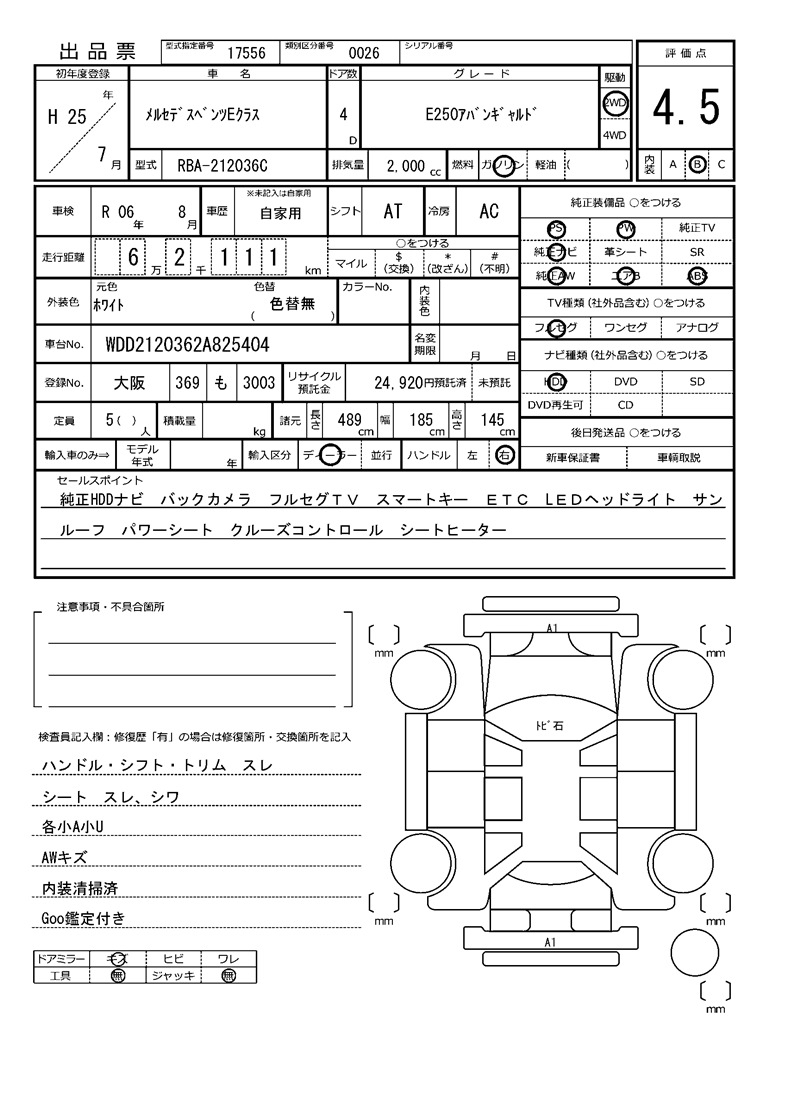 出品票 型式指定番号 17556 類別区分番号 0026 シリアル番号
評価点
4.5
内装 A B C
初年度登録 車名 ドア数 グレード 駆動
H 25 年 7 月
ﾒﾙｾﾃﾞｽﾍﾞﾝﾂEｸﾗｽ 4 D E250ｱﾊﾞﾝｷﾞｬﾙﾄﾞ
2WD
4WD
型式 RBA-212036C 排気量 2.000 cc 燃料 ガソリン 軽油 ( )
車検 R 06 年 8 月 車歴 ※未記入は自家用 自家用 シフト AT 冷房 AC
走行距離 6 万 2 千 1 1 1 km
○をつける
マイル $ (交換) * (改ざん) # (不明)
外装色 元色 ﾎﾜｲﾄ 色替 ( 色替無 ) カラーNo. 内装色
車台No. WDD2120362A825404 名変期限 月 日
登録No. 大阪 369 も 3003 リサイクル預託金 24,920円預託済 未預託
定員 5 ( ) 人 積載量 kg 諸元 長さ 489 cm 幅 185 cm 高さ 145 cm
輸入車のみ⇒ モデル年式 年 輸入区分 ディーラー 並行 ハンドル 左 右
純正装備品 ○をつける
PS PW 純正TV
純正ナビ 革シート SR
純正AW エアB ABS
TV種類(社外品含む) ○をつける
フルセグ ワンセグ アナログ
ナビ種類(社外品含む) ○をつける
HDD DVD SD
DVD再生可 CD
後日発送品 ○をつける
新車保証書 車輌取説
セールスポイント
純正HDDナビ バックカメラ フルセグTV スマートキー ETC LEDヘッドライト サン
ルーフ パワーシート クルーズコントロール シートヒーター
注意事項・不具合箇所
検査員記入欄：修復歴「有」の場合は修復箇所・交換箇所を記入
ハンドル・シフト・トリム スレ
シート スレ、シワ
各小A小U
AWキズ
内装清掃済
Goo鑑定付き
ドアミラー キズ ヒビ ワレ
工具 無 ジャッキ 無
A1
mm
mm
ﾄﾋﾞ石
mm
mm
A1
mm